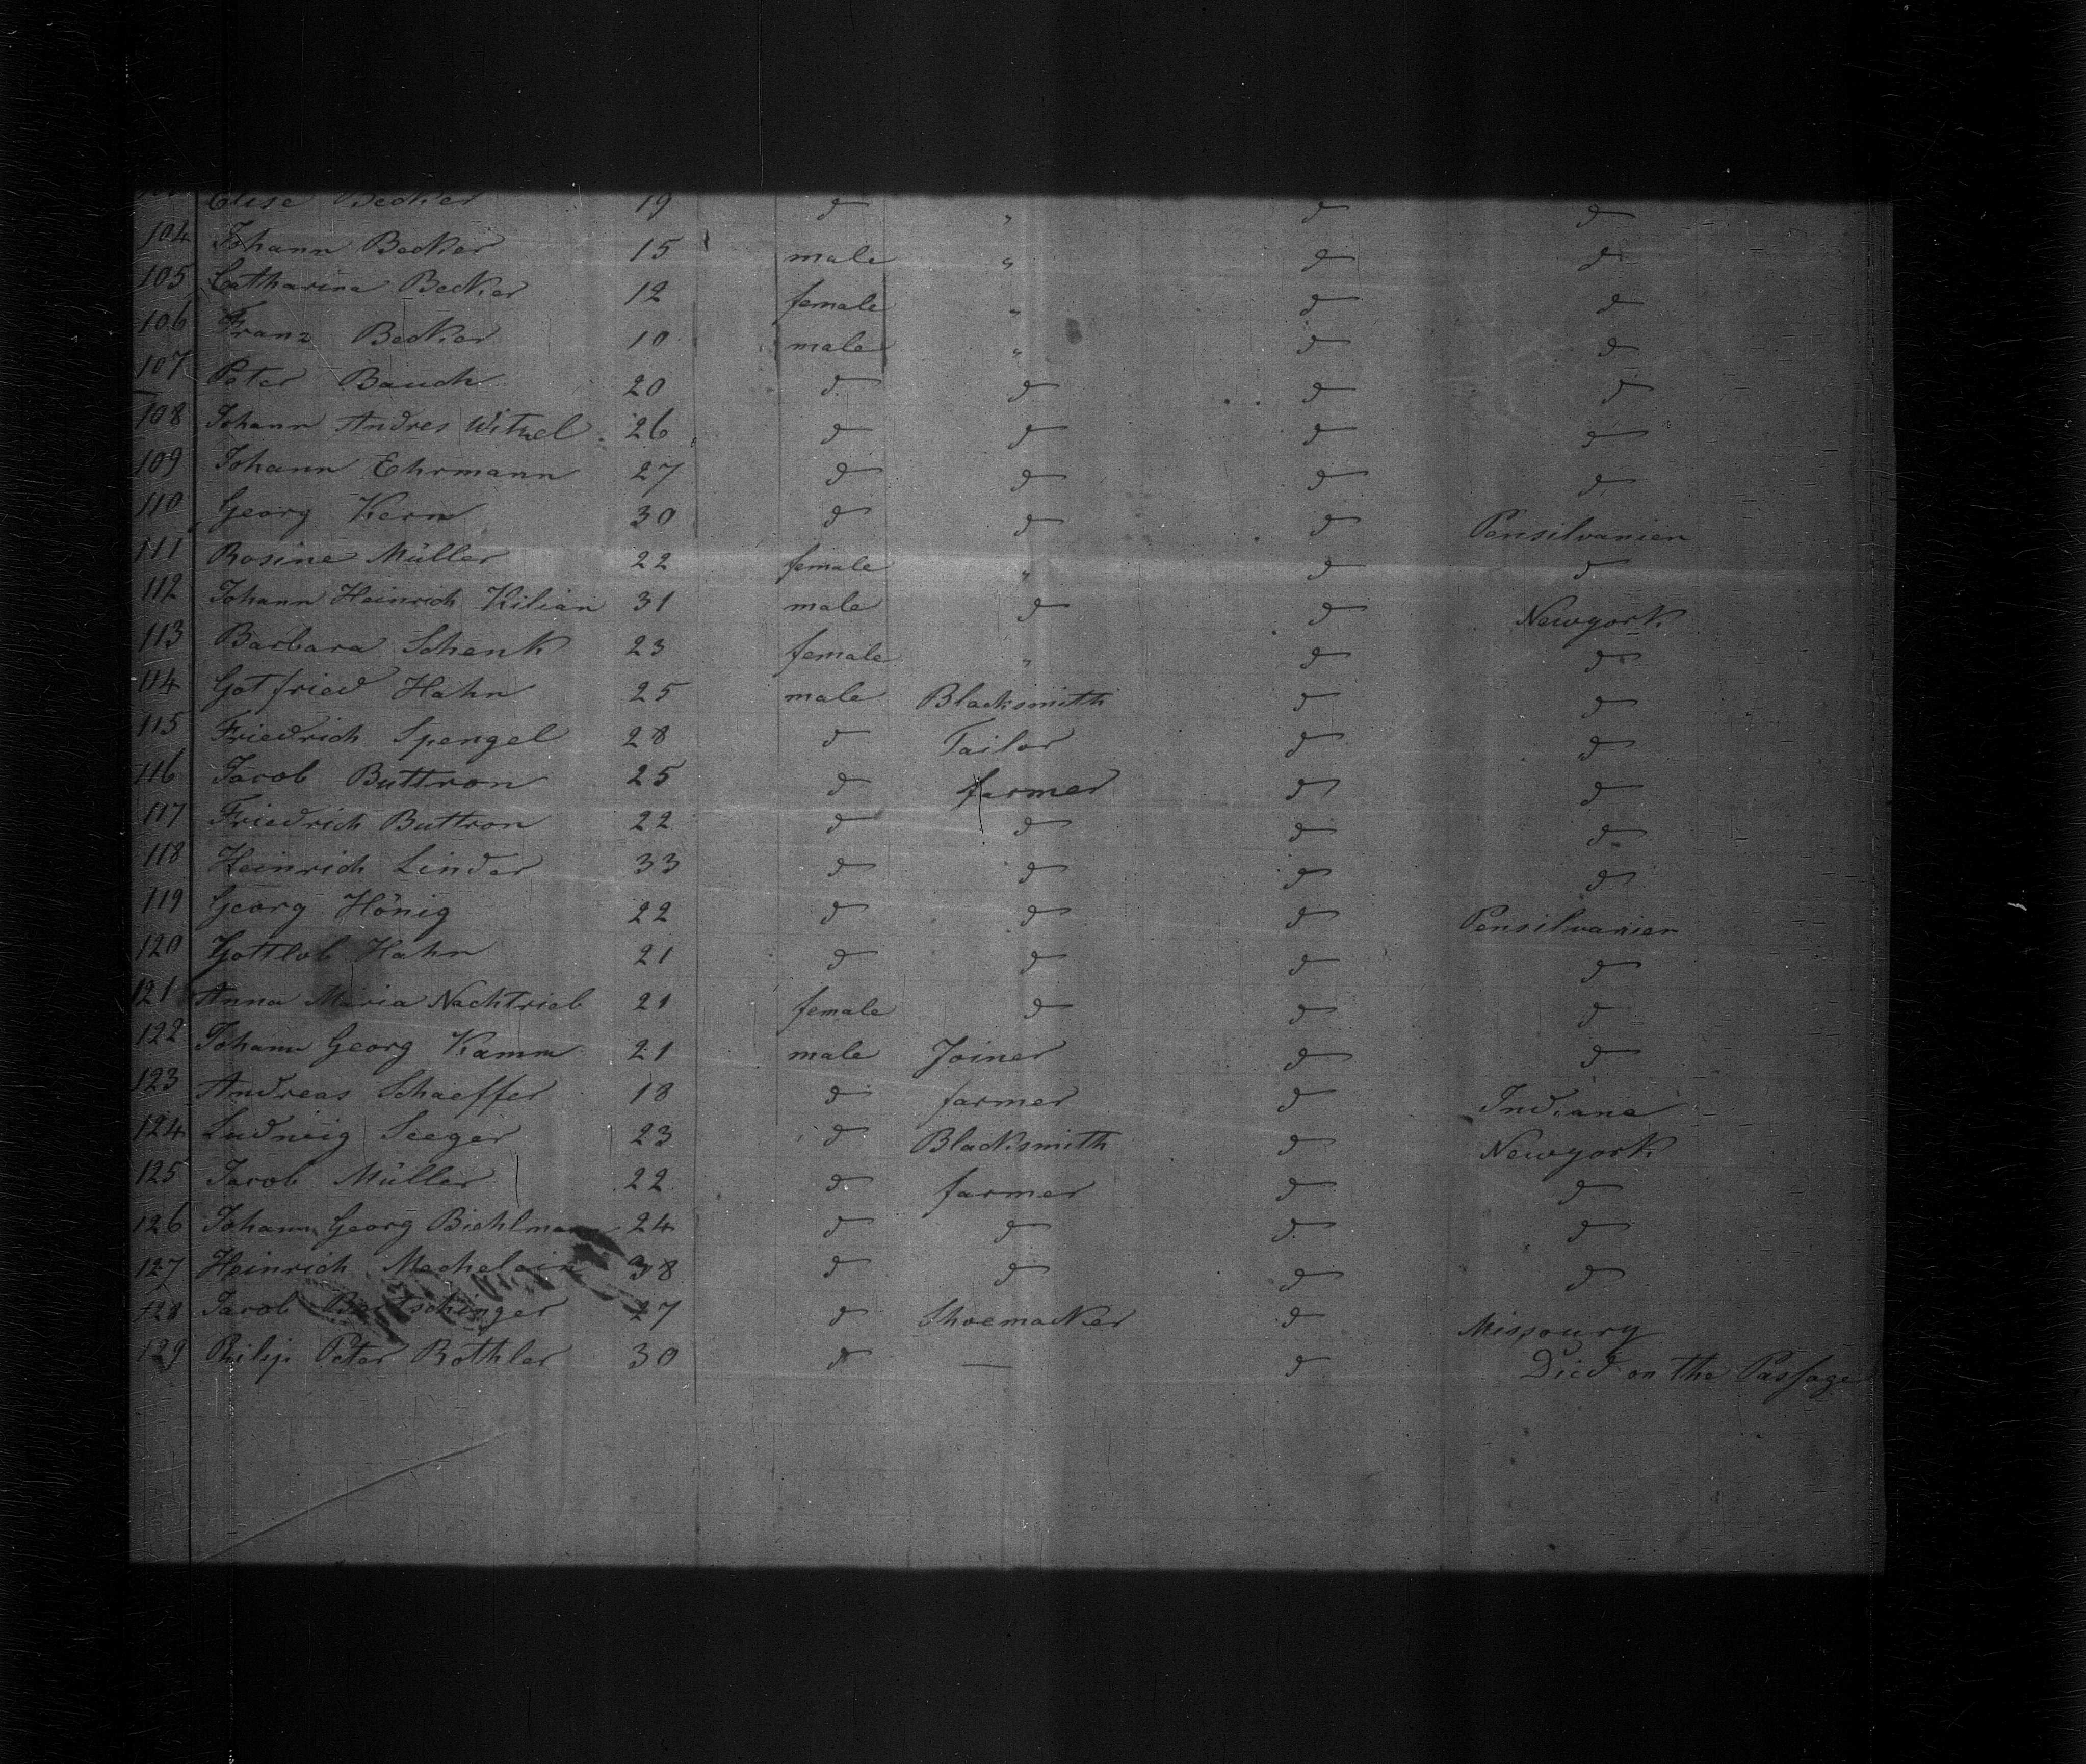 Elise Becker 19 d " d d
104 Johann Becker 15 male " d d
105 Catharina Becker 12 female " d d
106 Franz Becker 10 male " d d
107 Peter Bauch 20 d d d d
108 Johann Andres Witzel 26 d d d d
109 Johann Ehrmann 27 d d d d
110 Georg Kern 30 d d d Pensilvanien
111 Rosine Müller 22 female " d d
112 Johann Heinrich Kilian 31 male d d Newyork
113 Barbara Schenk 23 female " d d
114 Gotfried Hahn 25 male Blacksmith d d
115 Friedrich Spengel 28 d Tailor d d
116 Jacob Buttron 25 d farmer d d
117 Friedrich Buttron 22 d d d d
118 Heinrich Linder 33 d d d d
119 Georg Hönig 22 d d d Pensilvanien
120 Gottlob Hahn 21 d d d d
121 Anna Maria Nachtrieb 21 female d d d
122 Johann Georg Kamm 21 male Joiner d d
123 Andreas Schaeffer 18 d farmer d Indiana
124 Ludwig Seeger 23 d Blacksmith d Newyork
125 Jacob Müller 22 d farmer d d
126 Johann Georg Biehlmann 24 d d d d
127 Heinrich Mechelein 38 d d d d
128 Jacob 27 d Shoemaker d Missoury
129 Philip Peter Rothler 30 d — d Died on the Passage